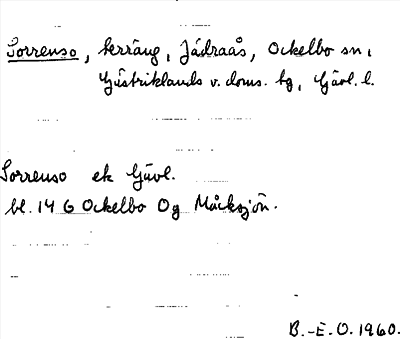 Sorrenso, terräng, Jädraås, Ockelbo sn,
Gästriklands v. doms. tg, Gävl. l.
Sorrenso ek Gävl.
bl. 14 G Ockelbo Og Måcksjön.
B.-E. O. 1960.